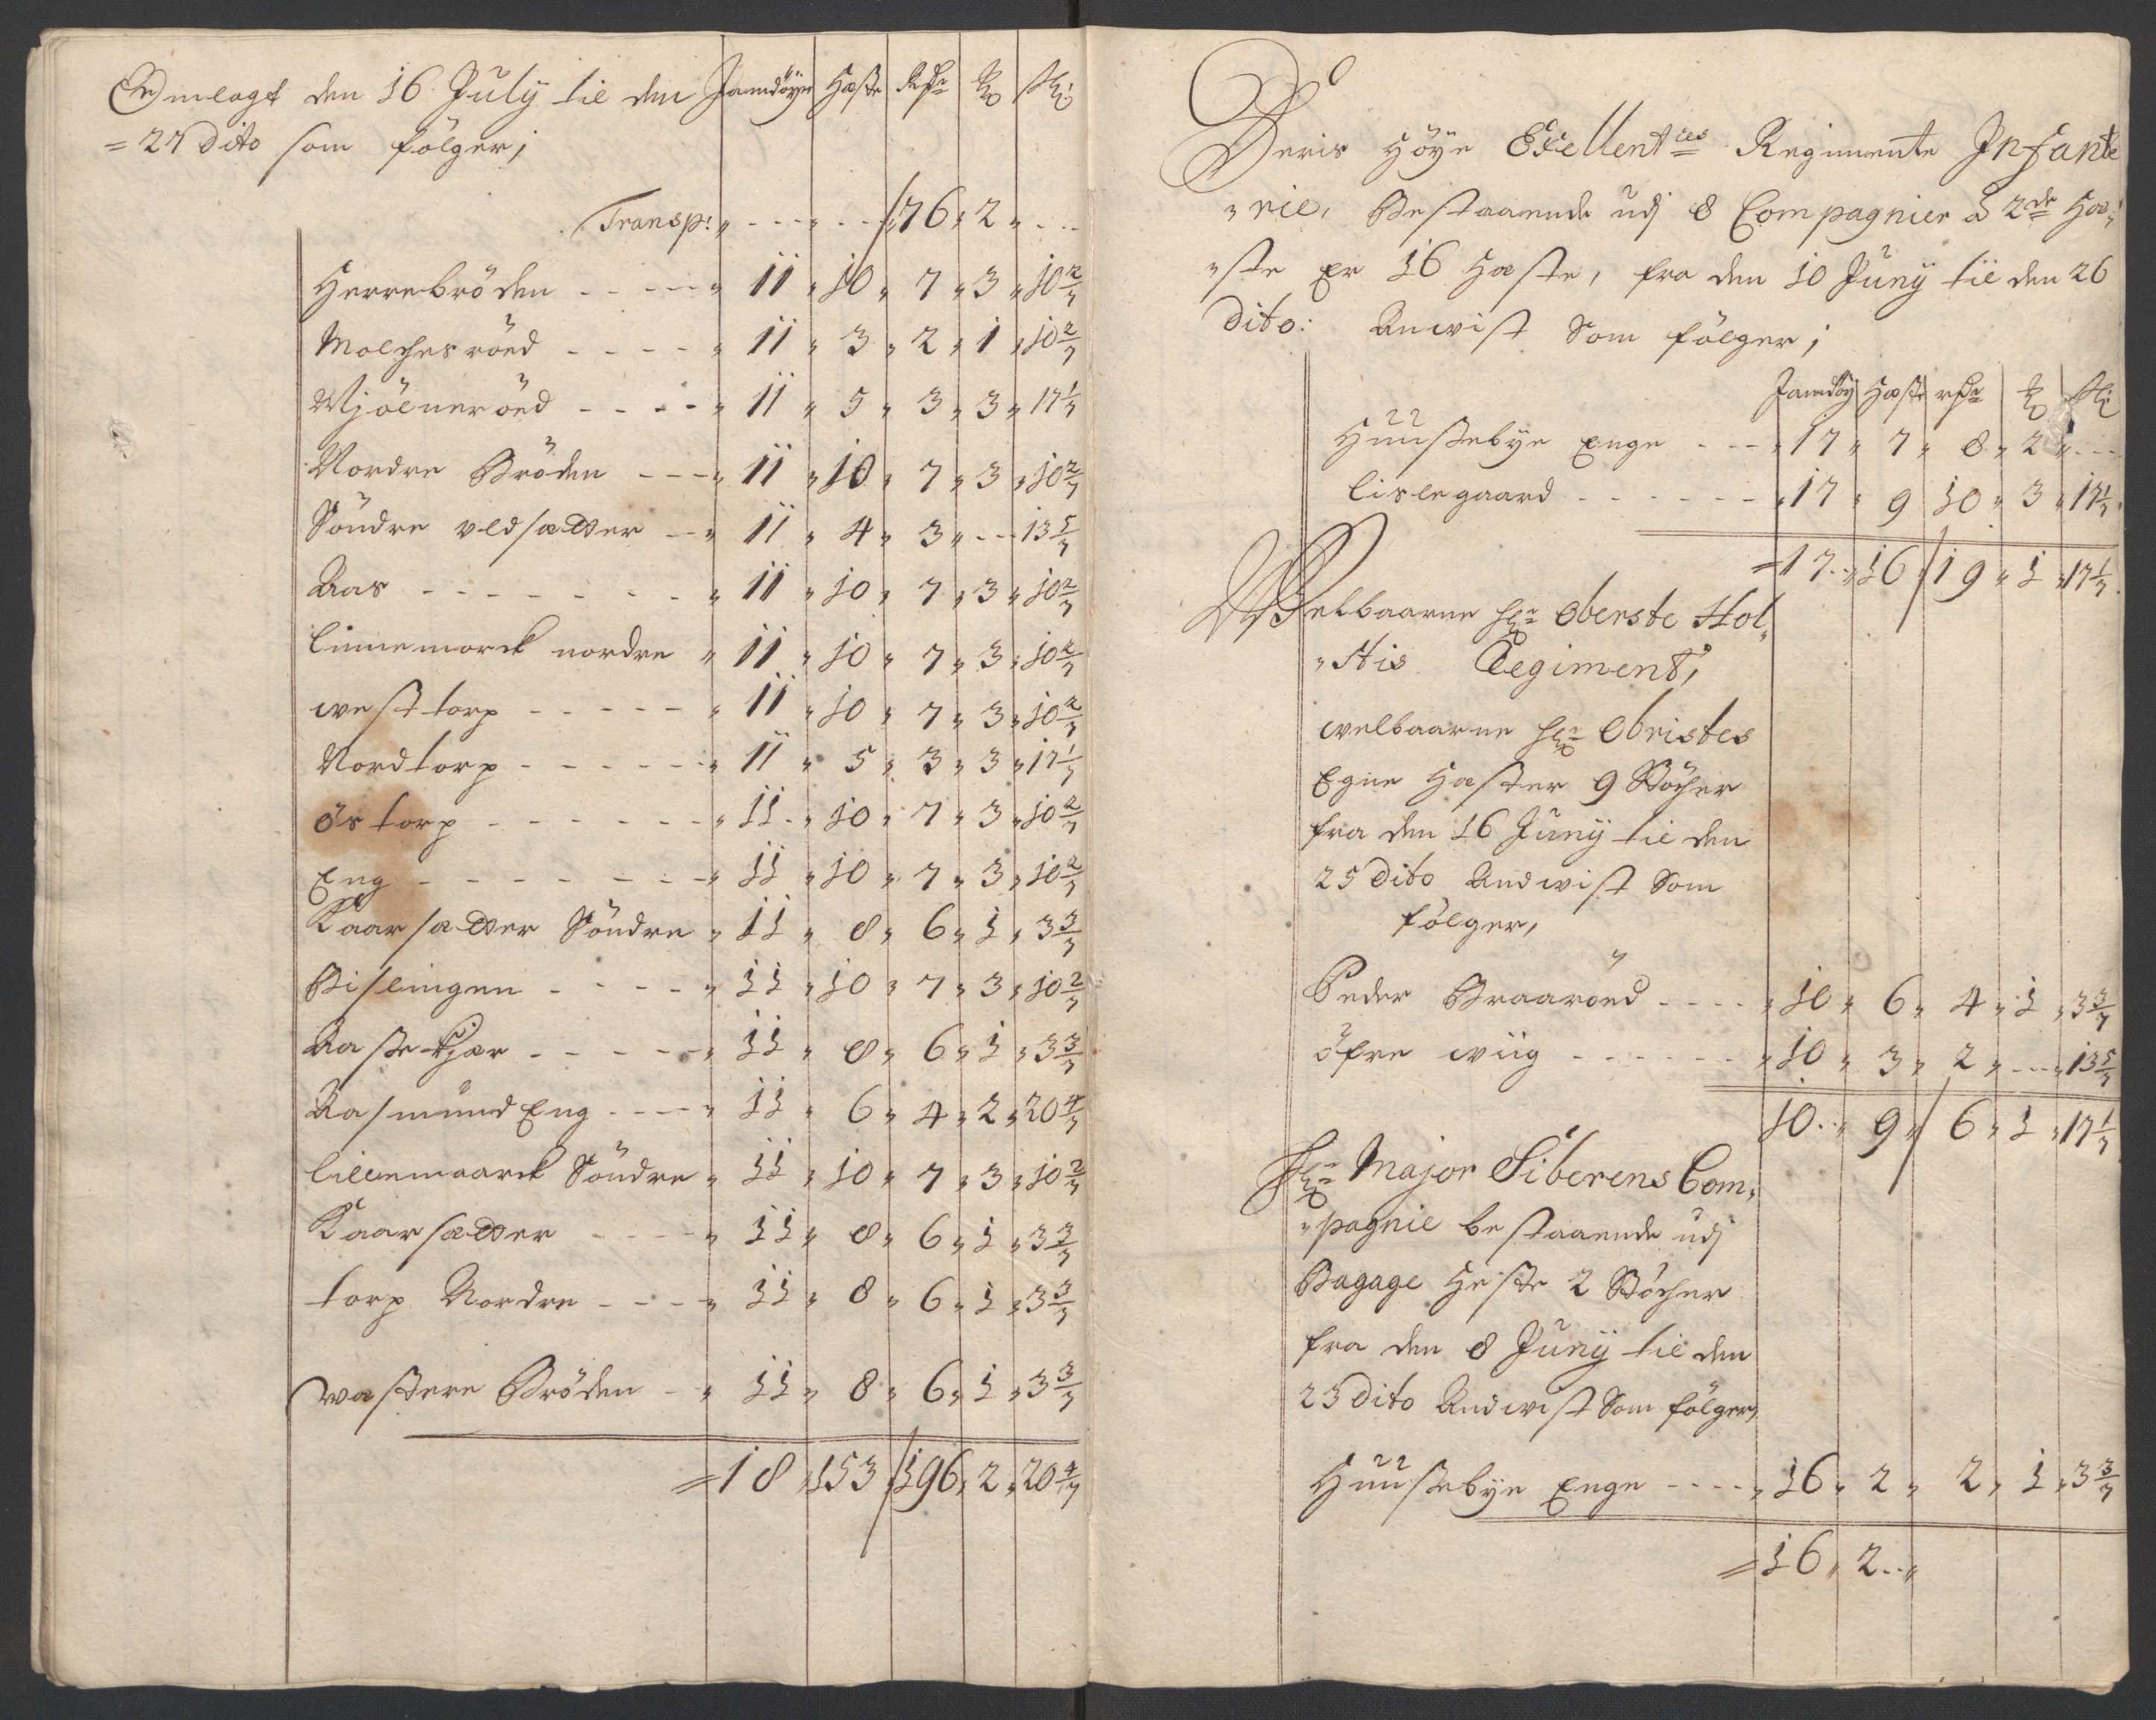 Omlagt den 16 July til den Jamdøgn Heste Rdr ort ski
= 27 Dito som fölger;
Transp: " - - - " - - - 76 " 2 " - - -
Herrebröden - - - - " 11 " 10 " 7 " 3 " 10 2/7
Molchesröed - - - - " 11 " 3 " 2 " 1 " 10 2/7
Mjölneröed - - - - " 11 " 5 " 3 " 3 " 17 1/7
Nordre Bröden - - - " 11 " 10 " 7 " 3 " 10 2/7
Söndre vedsætter - - " 11 " 4 " 3 " - - - 13 5/7
Aas - - - - - - - " 11 " 10 " 7 " 3 " 10 2/7
linnemorck nordre " 11 " 10 " 7 " 3 " 10 2/7
westtorp - - - - - " 11 " 10 " 7 " 3 " 10 2/7
Nordtorp - - - - - " 11 " 5 " 3 " 3 " 17 1/7
östorp - - - - - - " 11 " 10 " 7 " 3 " 10 2/7
Eng - - - - - - - " 11 " 10 " 7 " 3 " 10 2/7
Kaarsætter Söndre " 11 " 8 " 6 " 1 " 3 3/7
Bislingen - - - - " 11 " 10 " 7 " 3 " 10 2/7
Aastekjær - - - - - " 11 " 8 " 6 " 1 " 3 3/7
Aasmund Eng - - - - " 11 " 6 " 4 " 2 " 20 4/7
lillemaarck Söndre " 11 " 10 " 7 " 3 " 10 2/7
Kaarsætter - - - - " 11 " 8 " 6 " 1 " 3 3/7
torp Nordre - - - - " 11 " 8 " 6 " 1 " 3 3/7
wastere Bröden - - " 11 " 8 " 6 " 1 " 3 3/7
= 18 " 153 / 196 " 2 " 20 4/7
Deris Höye Excellentces Regimente Infante
" rie, Bestaaende udj 8 Compagnier à 2de Hæ
" ste er 16 Hæste, fra den 10 Juny til den 26
Dito: Anvist Som fölger;
Jamdøg Hæste rdr ort ski
Huustebye Enge - - - " 17 " 7 " 8 " 2 " - - -
lislegaard - - - - - - " 17 " 9 " 10 " 3 " 17 1/7
= 17 " 16 / 19 " 1 " 17 1/7
Welbaarne hr Oberste Hol
" stis Regiment,
welbaarne hr Obristes
Egne Hæster 9 Stöcher
fra den 16 Juny til den
25 Dito Andvist Som
fölger,
Peder Braaröed - - - - " 10 " 6 " 4 " 1 " 3 3/7
öfre wiig - - - - - - " 10 " 3 " 2 " - - - " 13 5/7
10 " 9 / 6 " 1 " 17 1/7
Hr Major Siberens Com
" pagnie bestaaende udj
Bagage Heste 2 Stöcher
fra den 8 Juny til den
23 Dito Andvist Som fölger,
Huustebye Enge - - - - " 16 " 2 " 2 " 1 " 3 3/7
= 16 " 2 "